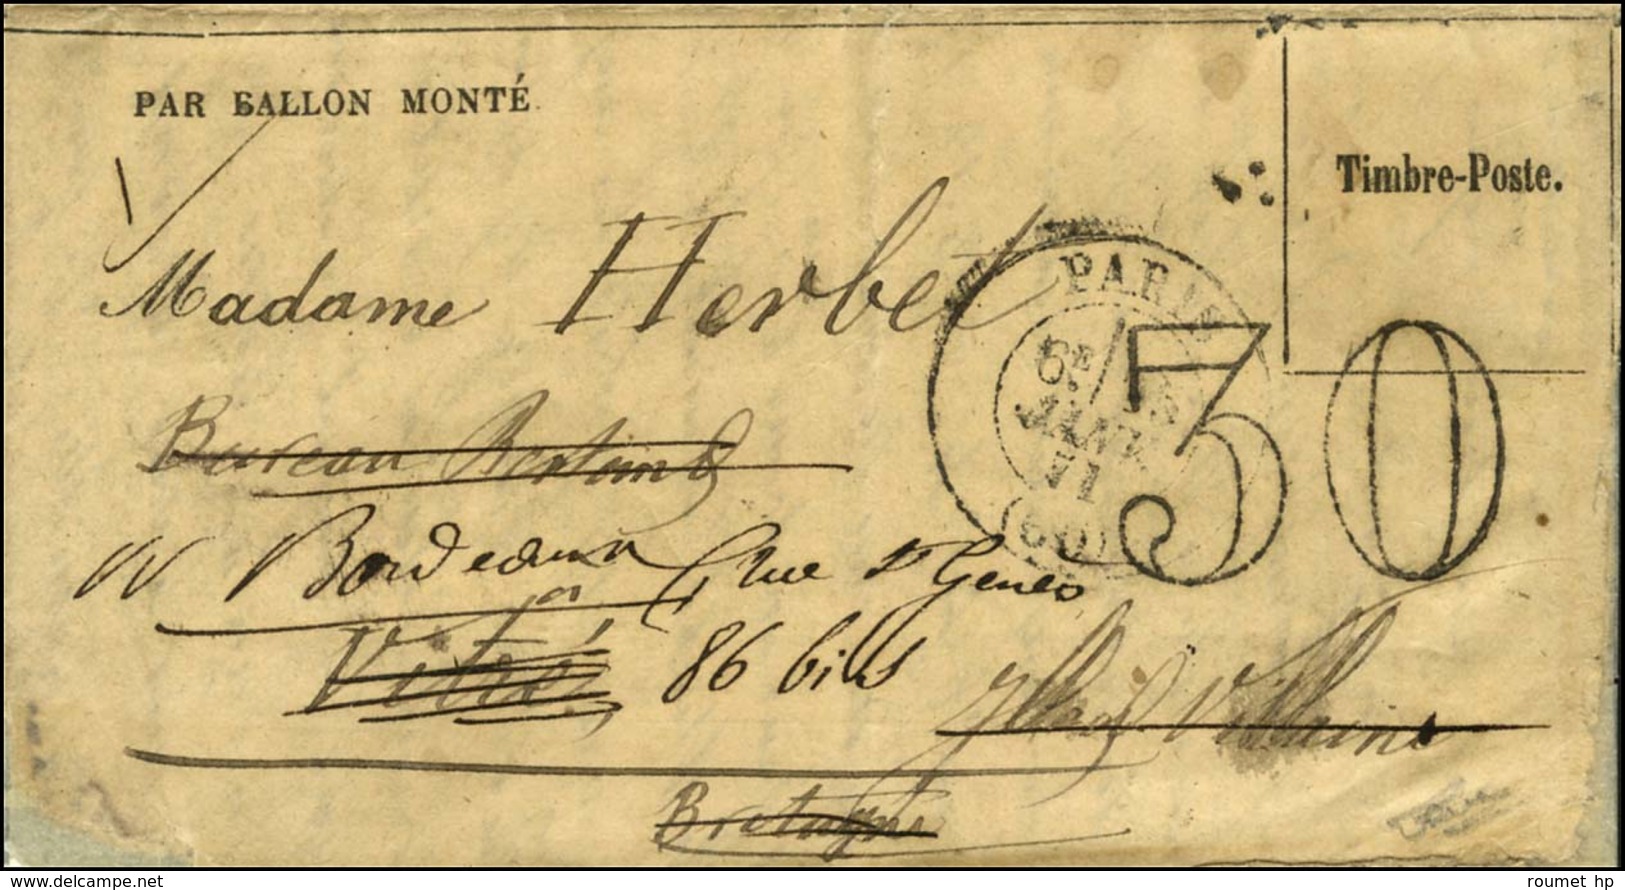 PAR BALLON MONTÉ
Timbre-Poste.
Madame Herbet
PARIS
6E
JANV.
71
(60)
30
Bureau Restant
Bordeaux rue St Genes
Vitré 86 bis
Ille et Villaine
Bretagne
delcampe.net
roumet hp